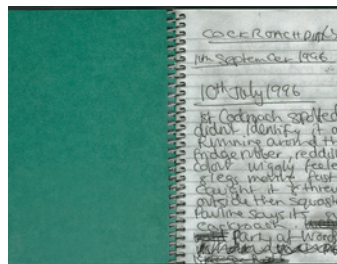 COCKROACH DIARIES
September 1996
10th July 1996
1st Cockroach spotted
didnt identify it
Running around th
fridge rubber, reddish
colour wiggly feele
legs moving fast
caught it & threw
outside then squash
Pauline says its
cockroach.
Party at Words